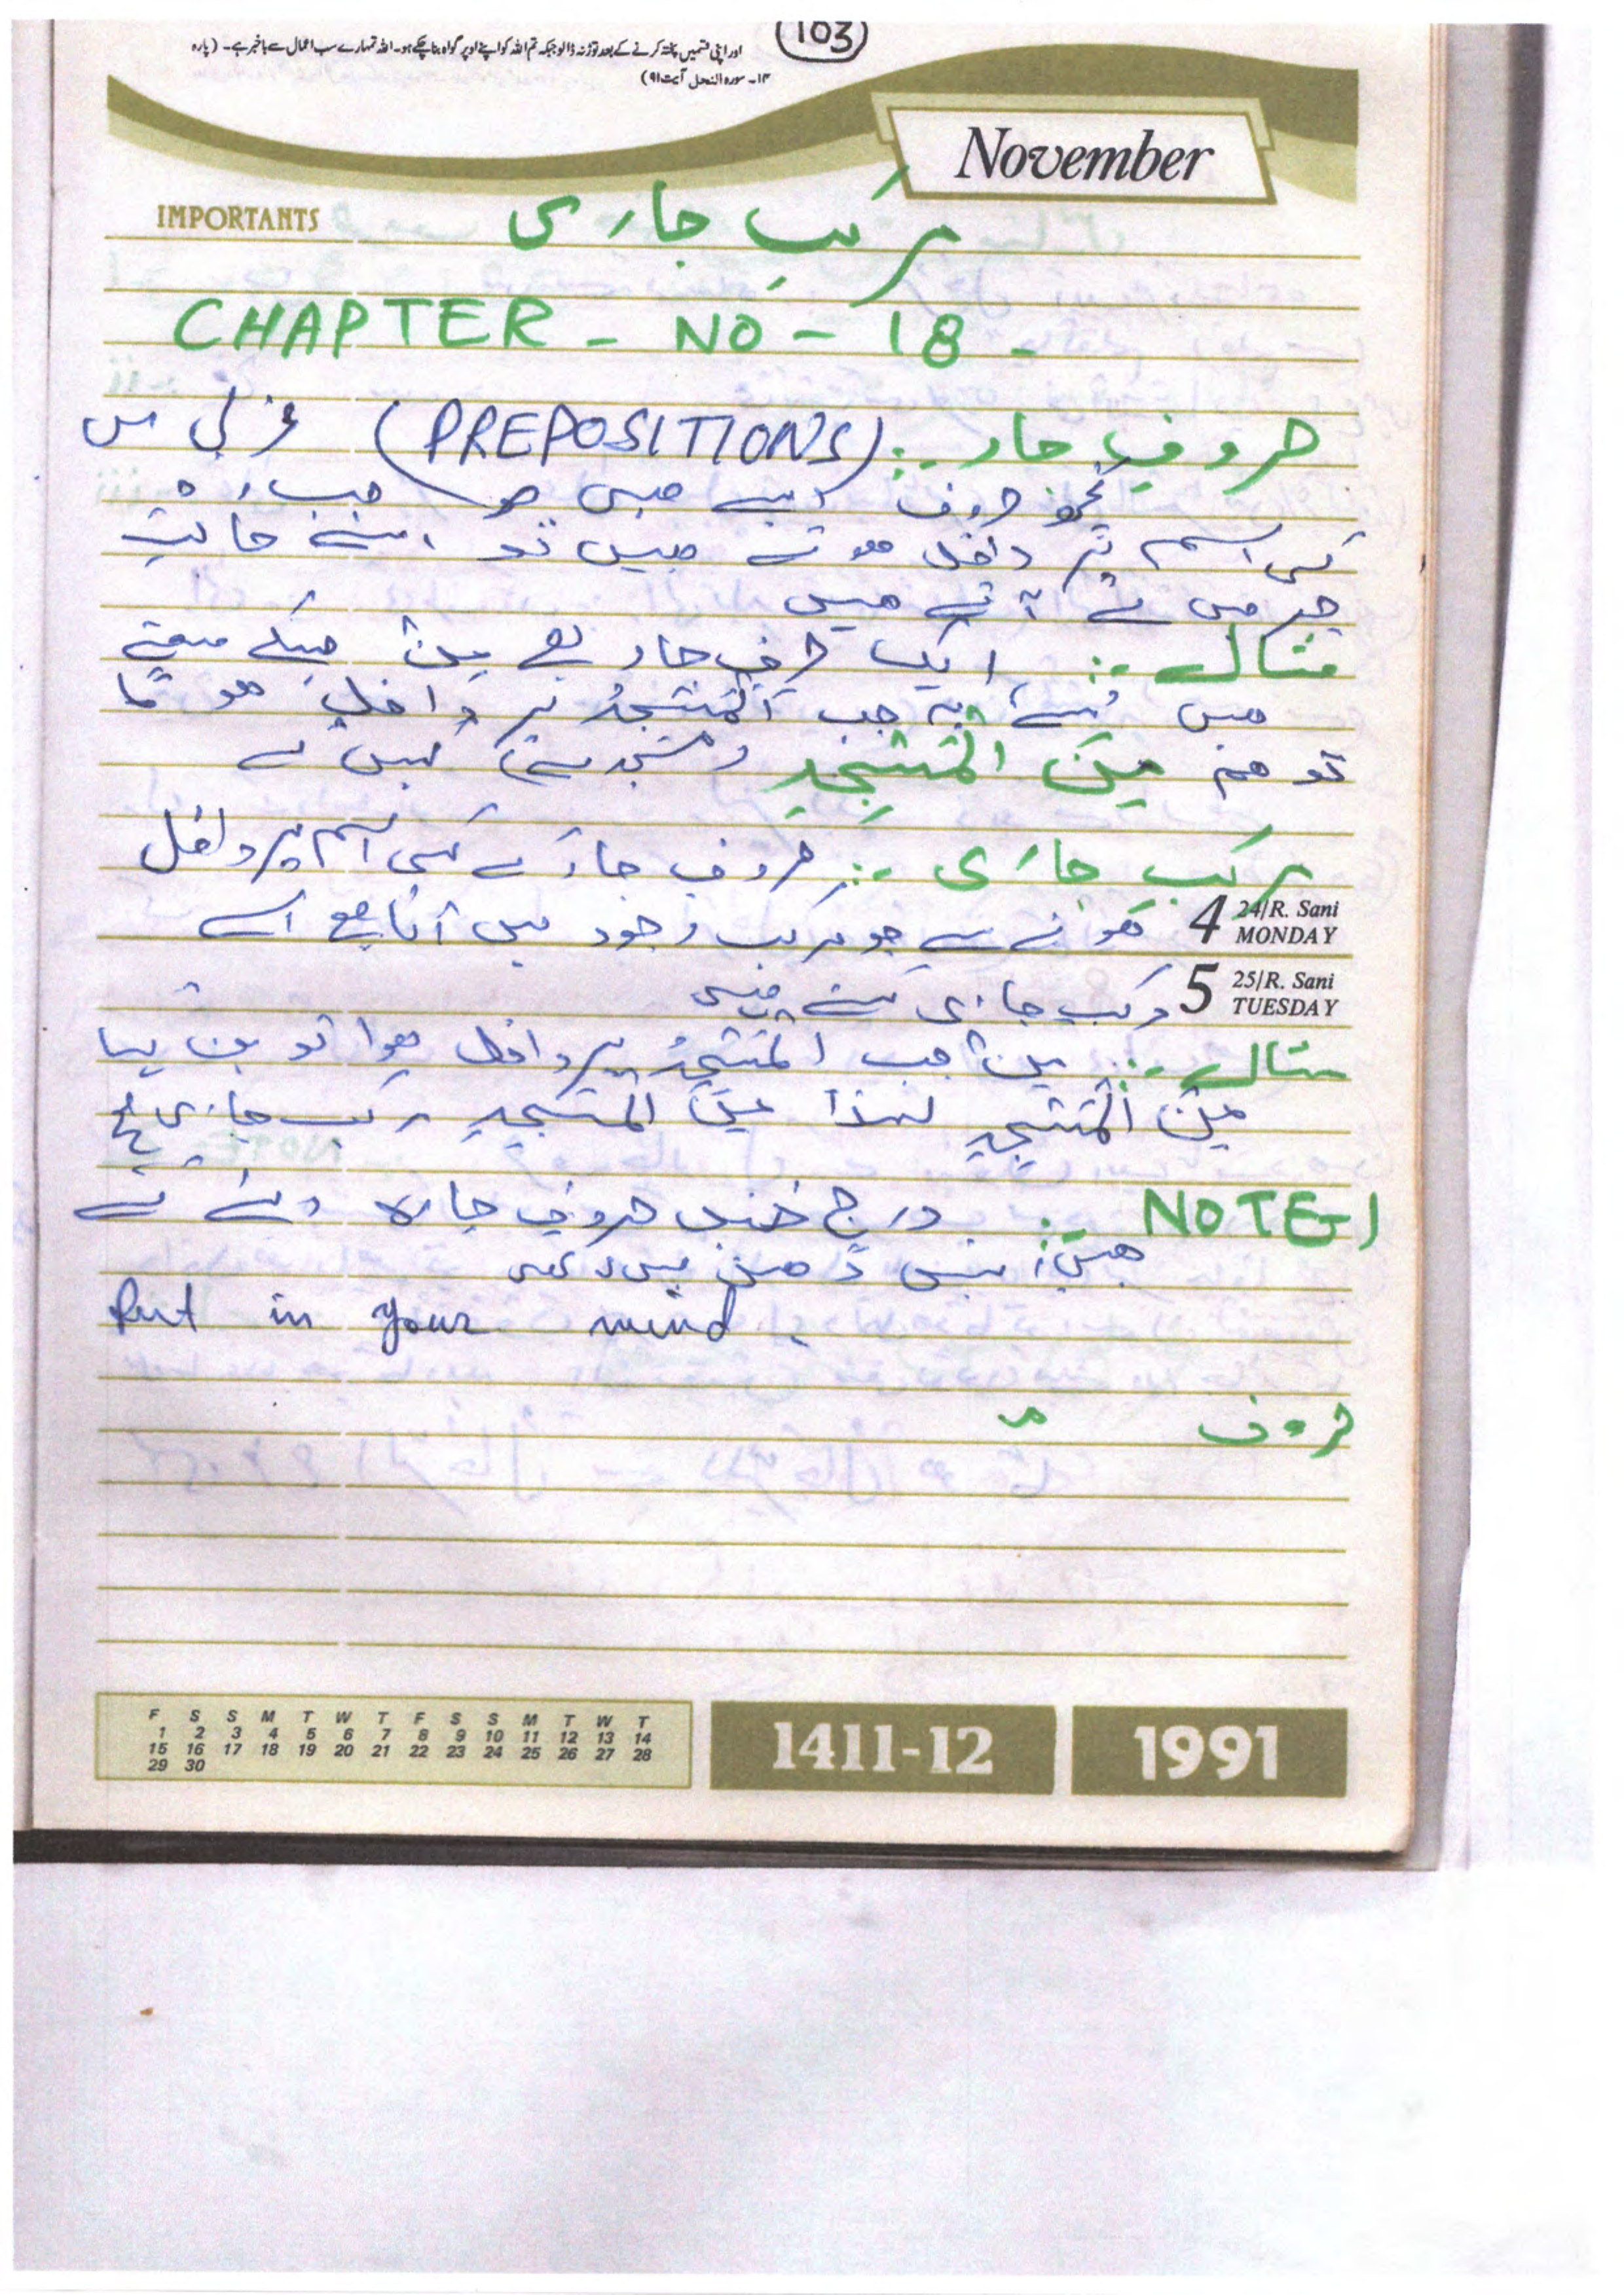 103
اور اپنی قسمیں پختہ کرنے کے بعد توڑ نہ ڈالو جبکہ تم اللہ کو اپنے اوپر گواہ بنا چکے ہو۔ اللہ تمہارے سب اعمال سے باخبر ہے۔ (پارہ
۱۴۔ سورہ النحل آیت ۹۱)
November
IMPORTANTS
مرکب جاری
CHAPTER - NO - 18 -
حروف جار :- (PREPOSITIONS) عربی میں
کچھ حروف ایسے ہیں جو جب
کسی اسم پر داخل ہوتے ہیں تو اسے حالت
جر میں لے آتے ہیں
مثال :- ایک حرف جار ہے مِنْ جسکے معنے
ہیں سے یہ جب اَلْمَسْجِدُ پر داخل ہو گا
تو ہم مِنَ الْمَسْجِدِ (مسجد سے) کہیں گے
مرکب جاری :- حروف جار کے کسی اسم پر داخل
ہونے سے جو مرکب وجود میں آتا ہے اسے
4 24/R. Sani
MONDAY
مرکب جاری کہتے ہیں
5 25/R. Sani
TUESDAY
مثال :- مِنْ جب اَلْمَسْجِدُ پر داخل ہوا تو بن گیا
مِنَ الْمَسْجِدِ لہذا مِنَ الْمَسْجِدِ مرکب جاری ہے
NOTE-1 :- درج ذیل حروف جارہ دئے گئے
ہیں انہیں ذہن میں رکھیں
Put in your mind.
حروف
F S S M T W T F S S M T W T
1 2 3 4 5 6 7 8 9 10 11 12 13 14
15 16 17 18 19 20 21 22 23 24 25 26 27 28
29 30
1411-12
1991